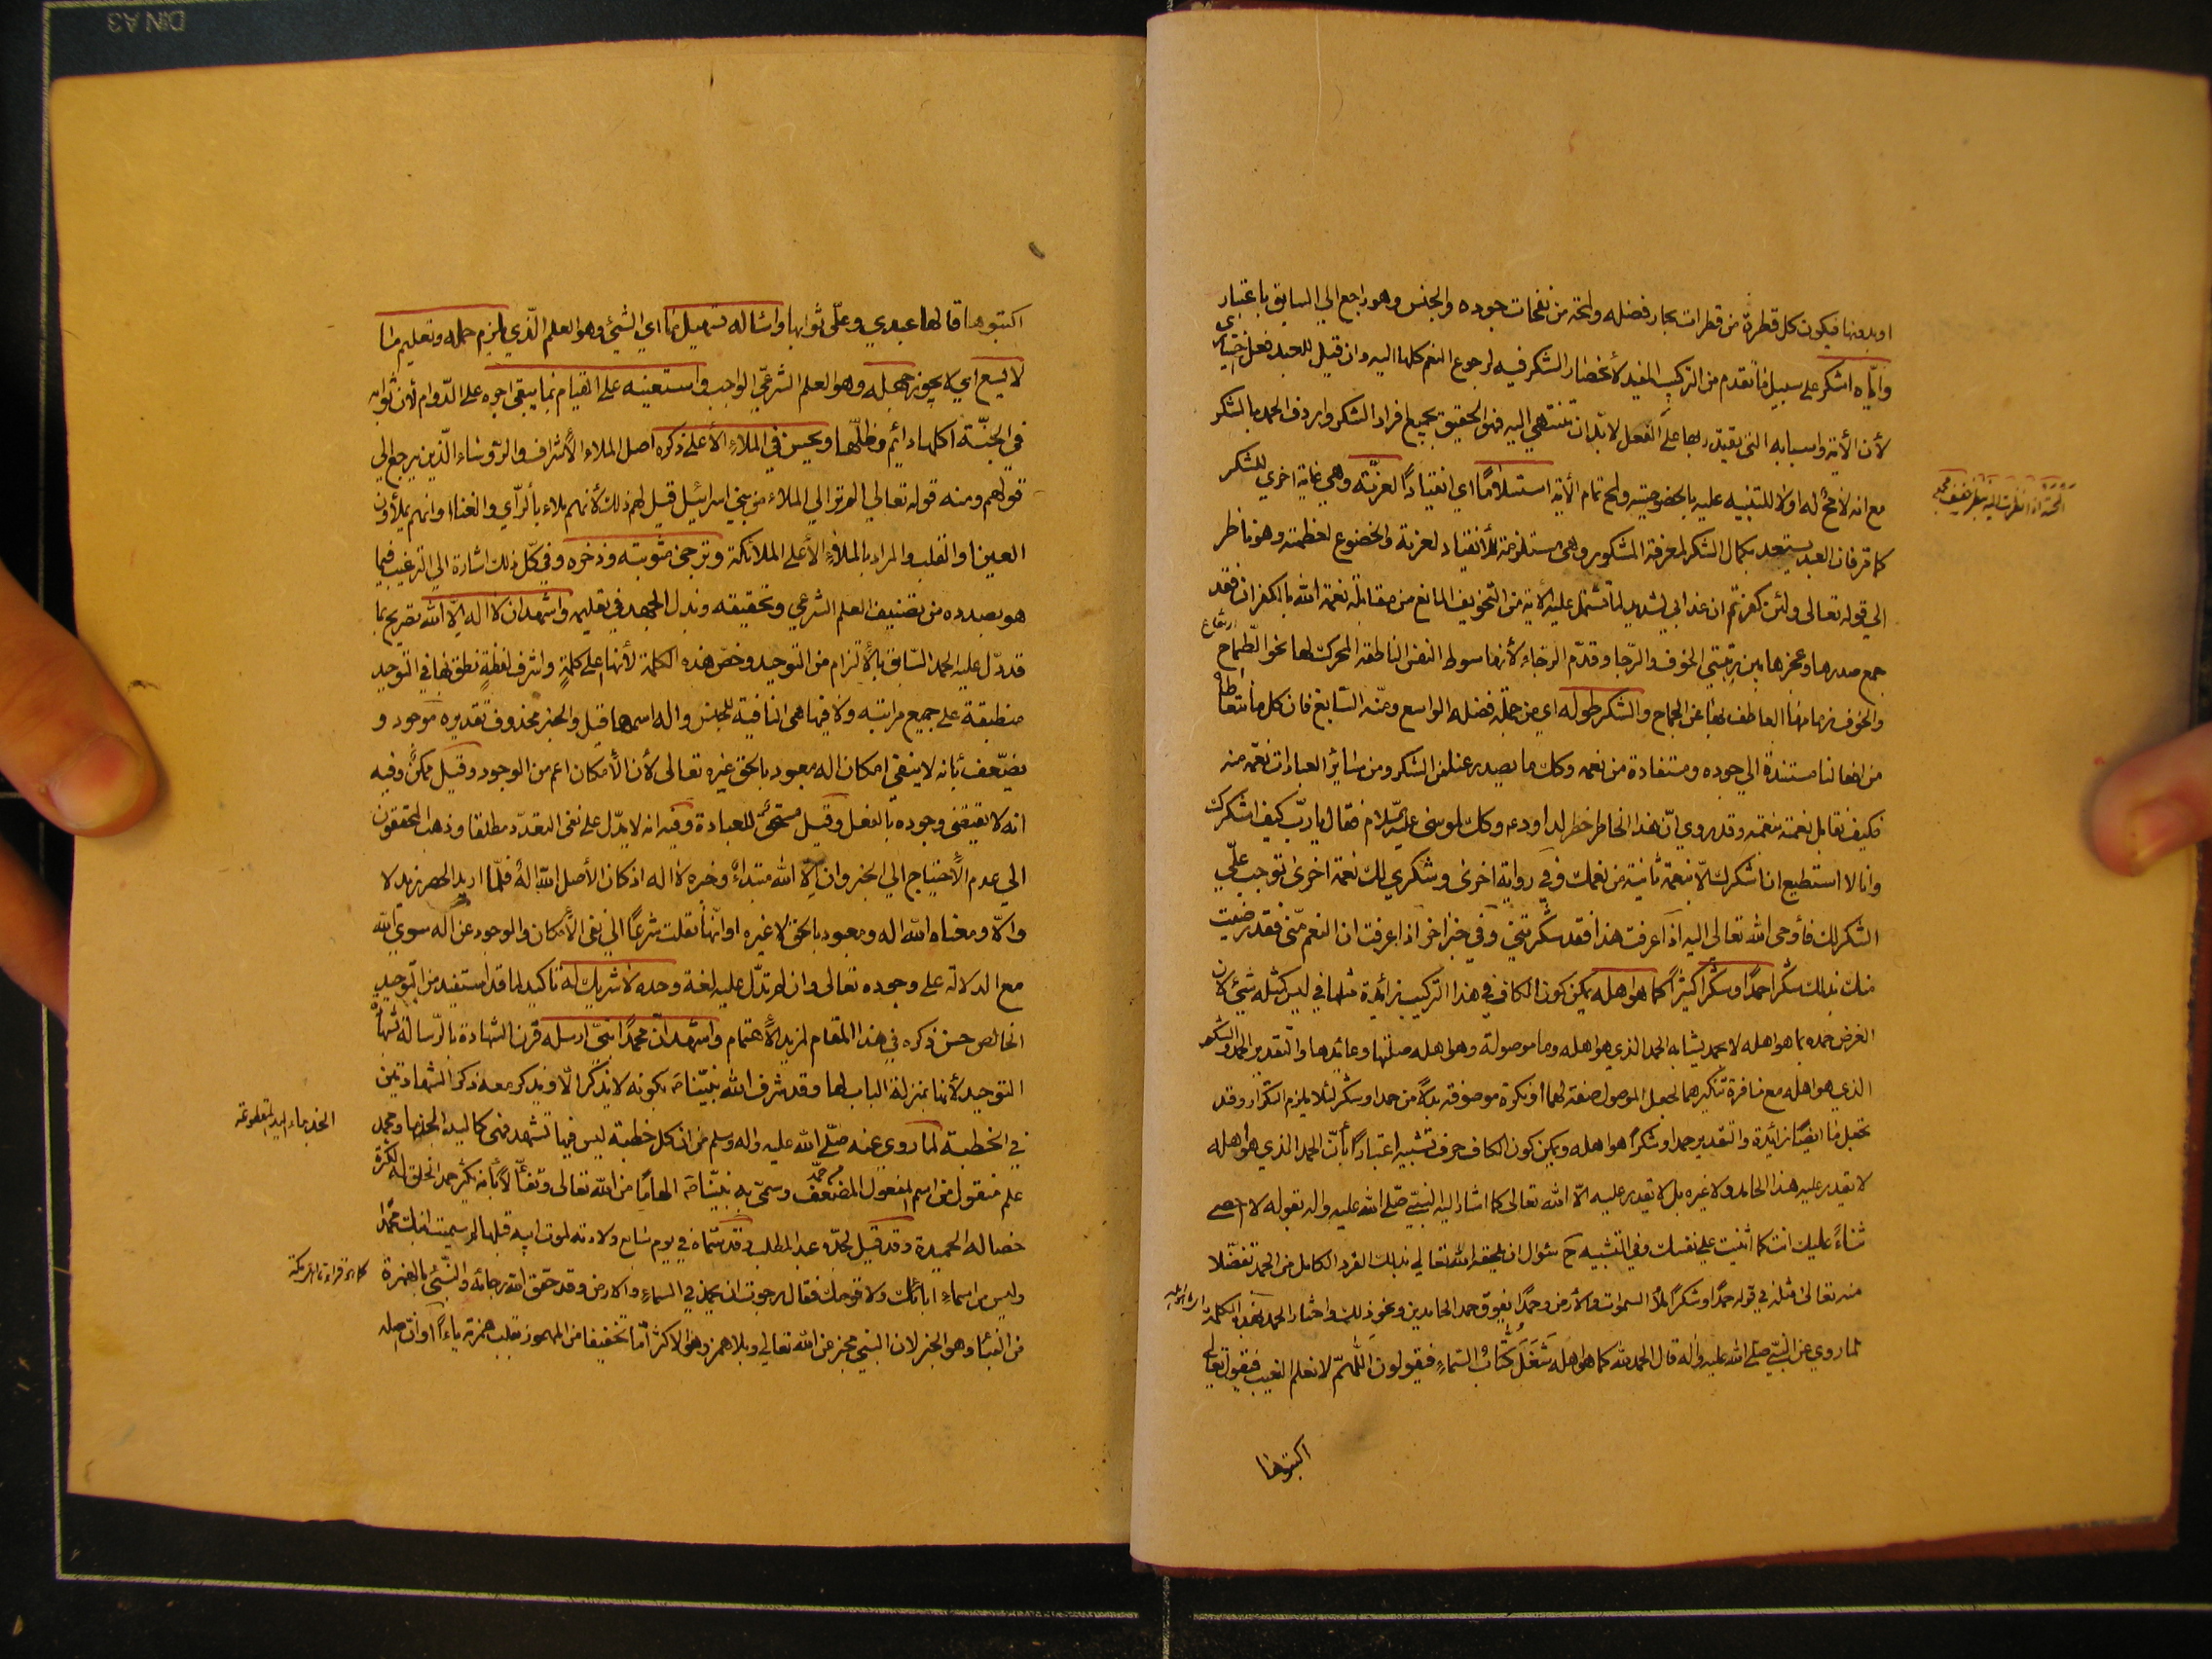 او بدونها فيكون كل قطرة من قطرات بحار فضله ولمحة من نفحات جوده والجنس وهو راجع الى السابق باعتبار
واياه اشكر على سبيل ما تقدم من التركيب المفيد لأنحصار الشكر فيه لرجوع النعم كلها اليه وان قيل للعبد فعل اختيارى
لأن الأته واسبابه التى يقتدر بها على الفعل لا بد ان تنتهى اليه فهو الحقيق بجميع افراد الشكر واردف الحمد بالشكر
مع انه لامح له اولا للتنبيه عليه بالخصوصية ولمح تمام الأية استسلاما اى انقيادًا لعزته وهى غاية اخرى للشكر
كما مر فان العبد يستعد بكمال الشكر لمعرفة المشكور وهى مستلزمة للأنقياد لعزته والخضوع لعظمته وهو ناظر
الى قوله تعالى ولئن كفرتم ان عذابى لشديد لما تشتمل عليه الأية من التخويف المانع من مقابلة نعمة الله بالكفران فقد
جمع صدرها وعجزها بين رتبتى الخوف والرجا وقدم الرجاء لأنه سوط النفس الناطقة المحرك لها نحو الطماح
ارتفاع
والخوف زمامها العاطف بها عن الجماح والشكر طوله اى من جملة فضله الواسع ومنه السابغ فان كل ما نتعاطاه
من افعالنا مستندة الى جوده ومستفادة من نعمه وكل ما يصدر عنا من الشكر ومن سائر العبادات نعمة منه
فكيف نقابل نعمته بنعمته وقد روى ان هذا الخاطر خطر لداود ع وكذلك لموسى عليه السلام فقال يا رب كيف اشكرك
وانا لا استطيع ان اشكرك الا بنعمة ثانية من نعمك وفى رواية اخرى وشكرى لك نعمة اخرى توجب على
الشكر لك فأوحى الله تعالى اليه اذا عرفت هذا فقد شكرتنى وفى خبر اخر اذا عرفت ان النعم منى فقد رضيت
منك بذلك شكرا حمدًا وشكرًا كثيرًا كما هو اهله يمكن كون الكاف فى هذا التركيب زائدة مثلها فى ليس كمثله شئ لأن
الغرض حمده بما هو اهله لا بحمد يشابه الحمد الذى هو اهله وما موصولة وهو اهله صلتها وعائدها والتقدير الحمد والشكر
الذى هو اهله مع منافرة تنكيرهما لجعل الموصول صفة لهما أو نكرة موصوفة بدلًا من حمدا وشكرا لئلا يلزم التكرار وقد
تجعل ما ايضًا زائدة والتقدير حمدا وشكرًا هو اهله ويمكن كون الكاف حرف تشبيه اعتبارًا بأن الحمد الذى هو اهله
لا يقدر عليه هذا الحامد ولا غيره بل لا يقدر عليه الا الله تعالى كما اشار اليه النبى صلى الله عليه واله بقوله لا احصى
ثناءً عليك انت كما اثنيت على نفسك وفى التشبيه ح سؤال ان يلحقه الله تعالى بذلك الفرد الكامل من الحمد تفضلا
منه تعالى مثله فى قوله حمدًا وشكرًا لملأ السموات والأرض وحمدًا يفوق حمد الحامدين ونحو ذلك واختار الحمد بهذه الكلمة
لما روى عن النبى صلى الله عليه واله قال الحمد لله كما هو اهله شَغَل كُتّاب السماء فيقولون اللهم لا نعلم الغيب فيقول تعالى
اكتبوها
اكتبوها كما قالها عبدى وعلى ثوابها واسأله تسهيل ما اى الشئ وهو العلم الذى يلزم حمله وتعليم ما
لا يسع اى لا يجوز جهله وهو العلم الشرعى الواجب واستعينه على القيام بما يبقى اجره على الدوام لأن ثوابه
فى الجنة اكلها دائم وظلها ويحسن فى الملاء الأعلى ذكره اصل الملاء الأشراف والرؤساء الذين يرجع الى
قولهم ومنه قوله تعالى الم تر الى الملاء من بنى اسرائيل قيل لهم ذلك لأنهم ملاء بالرأى والغنا او انهم يملأون
العين او القلب والمراد بالملاء الأعلى الملائكة وترجى مثوبته وذخره وفى كل ذلك اشارة الى الترغيب فيما
هو بصدده من تصنيف العلم الشرعى وتحقيقه وبذل الجهد فى تعليمه واشهد ان لا اله الا الله تصريح بما
قد دل عليه الحمد السابق بالألتزام من التوحيد وخص هذه الكلمة لأنها اعلى كلمةٍ واشرف لفظةٍ نطق بها فى التوحيد
منطبقة على جميع مراتبه ولا فيها هى النافية للجنس واله اسمها قيل والخبر محذوف تقديره موجود و
يضعف بأنه لا ينفى امكان اله معبود بالحق غيره تعالى لأن الأمكان اعم من الوجود وقيل ممكن وفيه
انه لا يقتضى وجوده بالفعل وقيل مستحق للعبادة وفيه انه لا يدل على نفى التعدد مطلقا وذهب المحققون
الى عدم الأحتياج الى الخبر وان الا الله مبتداء وخبره لا اله اذ كان الأصل الله اله فلما اريد الحصر زيد لا
والا ومعناه الله اله ومعبود بالحق لا غيره او انها نقلت شرعًا الى نفى الأمكان والوجود عن اله سوى الله
مع الدلالة على وجوده تعالى وان لم تدل عليه لغة وحده لا شريك له تأكيد لما قد استفيد من التوحيد
الخالص حسن ذكره فى هذا المقام لمزيد الأهتمام واشهد ان محمدًا نبى ارسله قرن الشهادة بالرسالة بشهادة
التوحيد لأنها بمنزلة الباب لها وقد شرف الله نبينا ص بكونه لا يذكر الا ويذكر معه ذكر الشهادتين
فى الخطبة لما روى عنه صلى الله عليه واله وسلم من ان كل خطبة ليس فيها تشهد فهى كاليد الجذماء ومحمد
الجذماء اليد المقطوعة
علم منقول من اسم المفعول المضعف وسمى به نبينا ص الهامًا من الله تعالى وتفألًا بأنه يكثر حمد الخلق له لكثرة
خصاله الحميدة وقد قيل لجده عبد المطلب وقد سماه فى يوم سابع ولادته لموت ابيه قبلها لم سميت ابنك محمدًا
وليس من اسماء ابائك ولا قومك فقال رجوت ان يحمد فى السماء والارض وقد حقق الله رجائه والنبئ بالهمزة
من النباء وهو الخبر لان النبى مخبر عن الله تعالى وبلا همز وهو الاكثر اما تخفيفا من المهموز بقلب همزته ياءًا او ان اصله